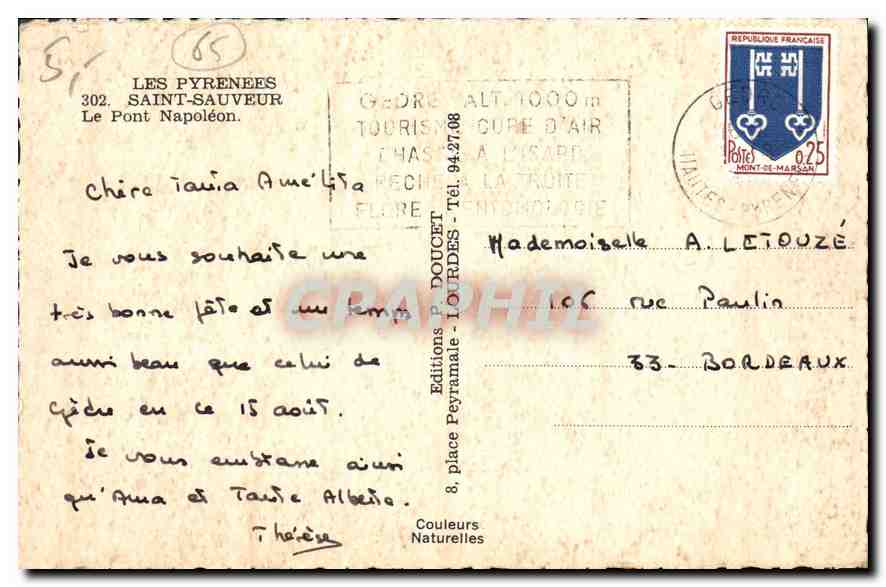 5,-
65
LES PYRENEES
302. SAINT-SAUVEUR
Le Pont Napoléon.
GEDRE ALT. 1000 m
TOURISME CURE D'AIR
CHASSE A L'ISARD
PECHE A LA TRUITE
FLORE ENTOMOLOGIE
REPUBLIQUE FRANÇAISE
POSTES 0,25
MONT-DE-MARSAN
GEDRE
HAUTES-PYRENEES
Chère Tanta Amélita
Je vous souhaite une
très bonne fête et un temps
aussi beau que celui de
Gèdre en ce 15 août.
Je vous embrasse ainsi
qu'Ama et Tante Alberte.
Thérèse
Editions P. DOUCET
8, place Peyramale - LOURDES - Tél. 94.27.08
Couleurs
Naturelles
Mademoiselle A. LETOUZÉ
106 rue Paulin
33- BORDEAUX
CPAPHIL